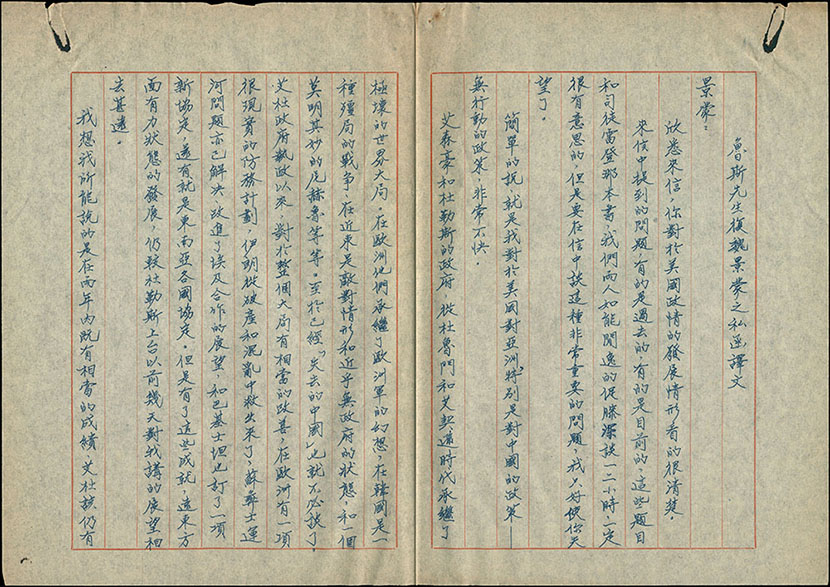 魯斯先生復魏景蒙之私函譯文
景蒙：
欣悉來信，你對於美國政情的發展情形看的很清楚。
來信中提到的問題，有的是過去的，有的是目前的，這些題目
和司徒雷登那本書，我們兩人如能閒逸的促膝深談一二小時一定
很有意思的，但是要在信中談這種非常重要的問題，我只好使你失
望了。
簡單的說，就是我對於美國對亞洲特別是對中國的政策——
無行動的政策，非常不快。
艾森豪和杜勒斯的政府，從杜魯門和艾契遜時代承繼了
極壞的世界大局。在歐洲他們承繼了歐洲軍的幻想，在韓國是一
種殭局的戰爭，在近東是敵對情形和近乎無政府的狀態，和一個
莫明其妙的尼赫魯等等。至於已經「失去的中國」也就不必談了。
艾杜政府執政以來，對於整個大局有相當的改善，在歐洲有一項
很現實的防務計劃，伊朗從破產和混亂中救出來了，蘇彝士運
河問題亦已解決，改進了埃及合作的展望，和巴基士坦也訂了一項
新協定，還有就是東南亞各國協定。但是有了這些成就，遠東方
面有力狀態的發展，仍較杜勒斯上台以前幾天對我講的展望相
去甚遠。
我想我所能說的是在兩年內既有相當的成績，艾杜該仍有